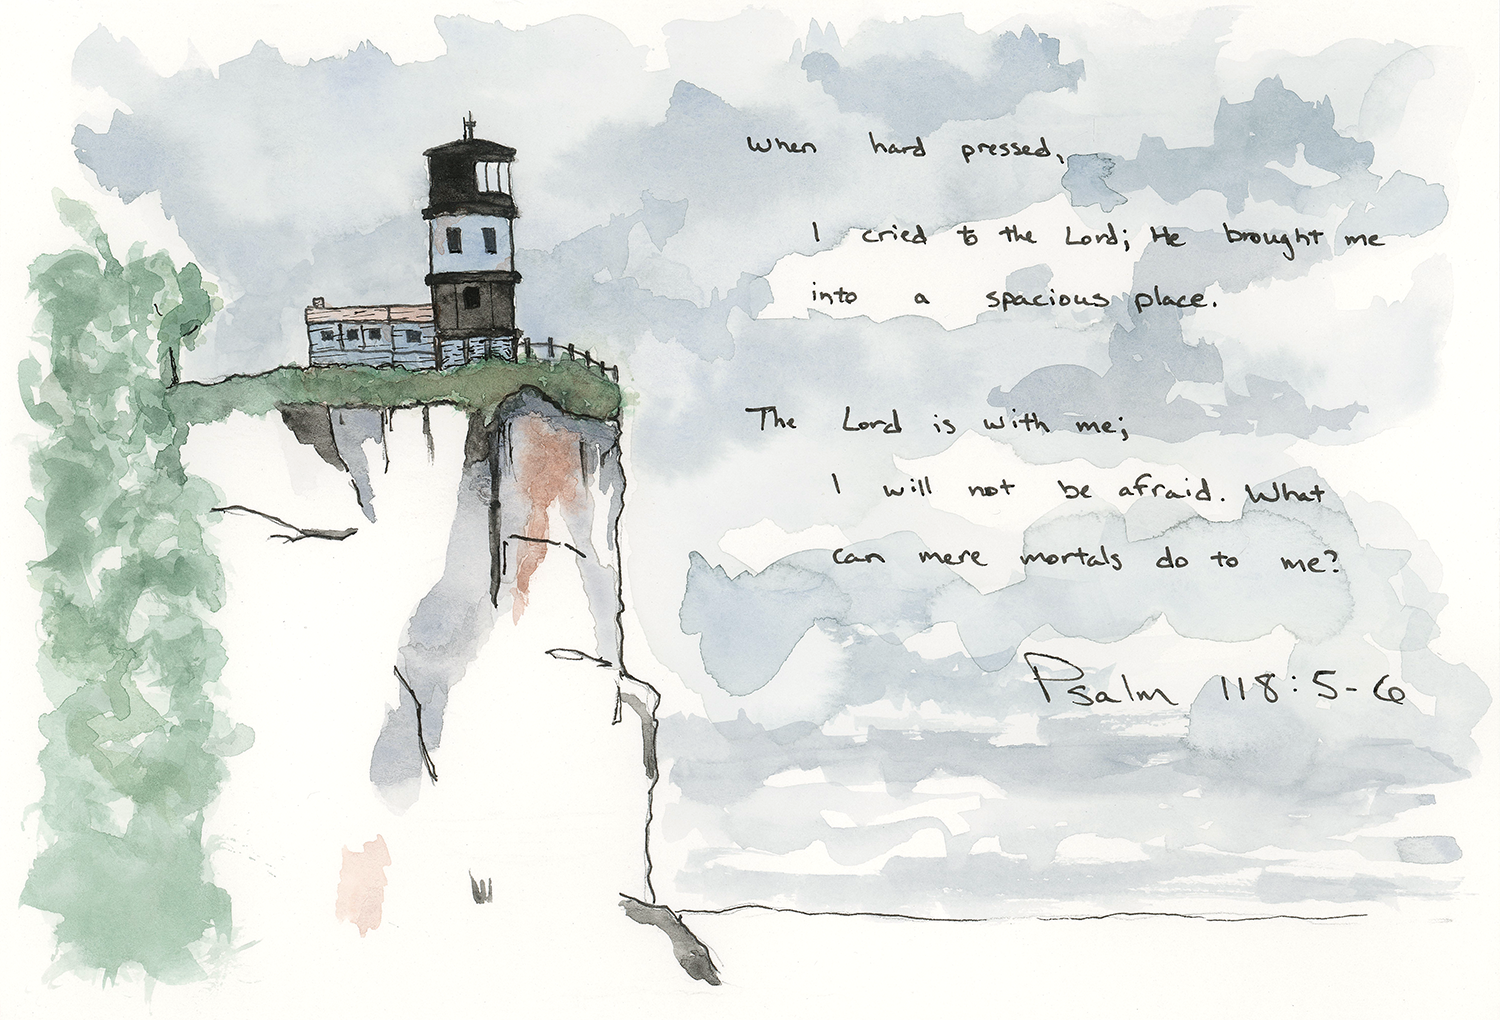 When hard pressed,
I cried to the Lord; He brought me
into a spacious place.
The Lord is with me;
I will not be afraid. What
can mere mortals do to me?
Psalm 118:5-6